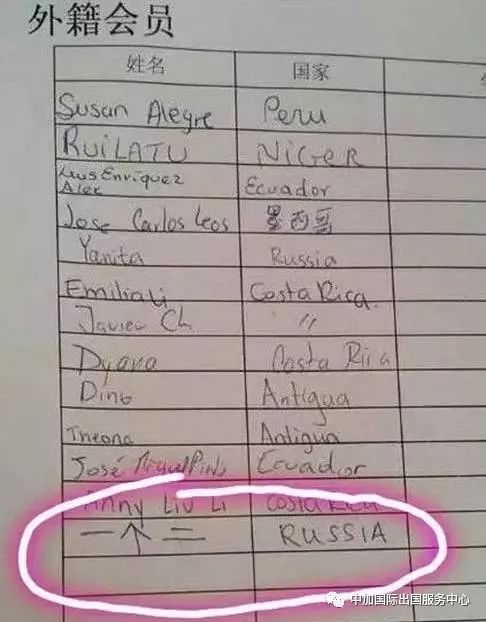 外籍会员
姓名 国家
Susan Alegre Peru
RUILATU NIGER
Luis Enriquez Ecuador
Alex
Jose Carlos Leos 墨西哥
Yanita Russia
Emiliali Costa Rica.
Javier Ch. 〃
Dyana Costa Rica
Dino Antigua
Theona Antigua
José Ecuador
Anny Liu Li Costa Rica
一个二 RUSSIA
中加国际出国服务中心